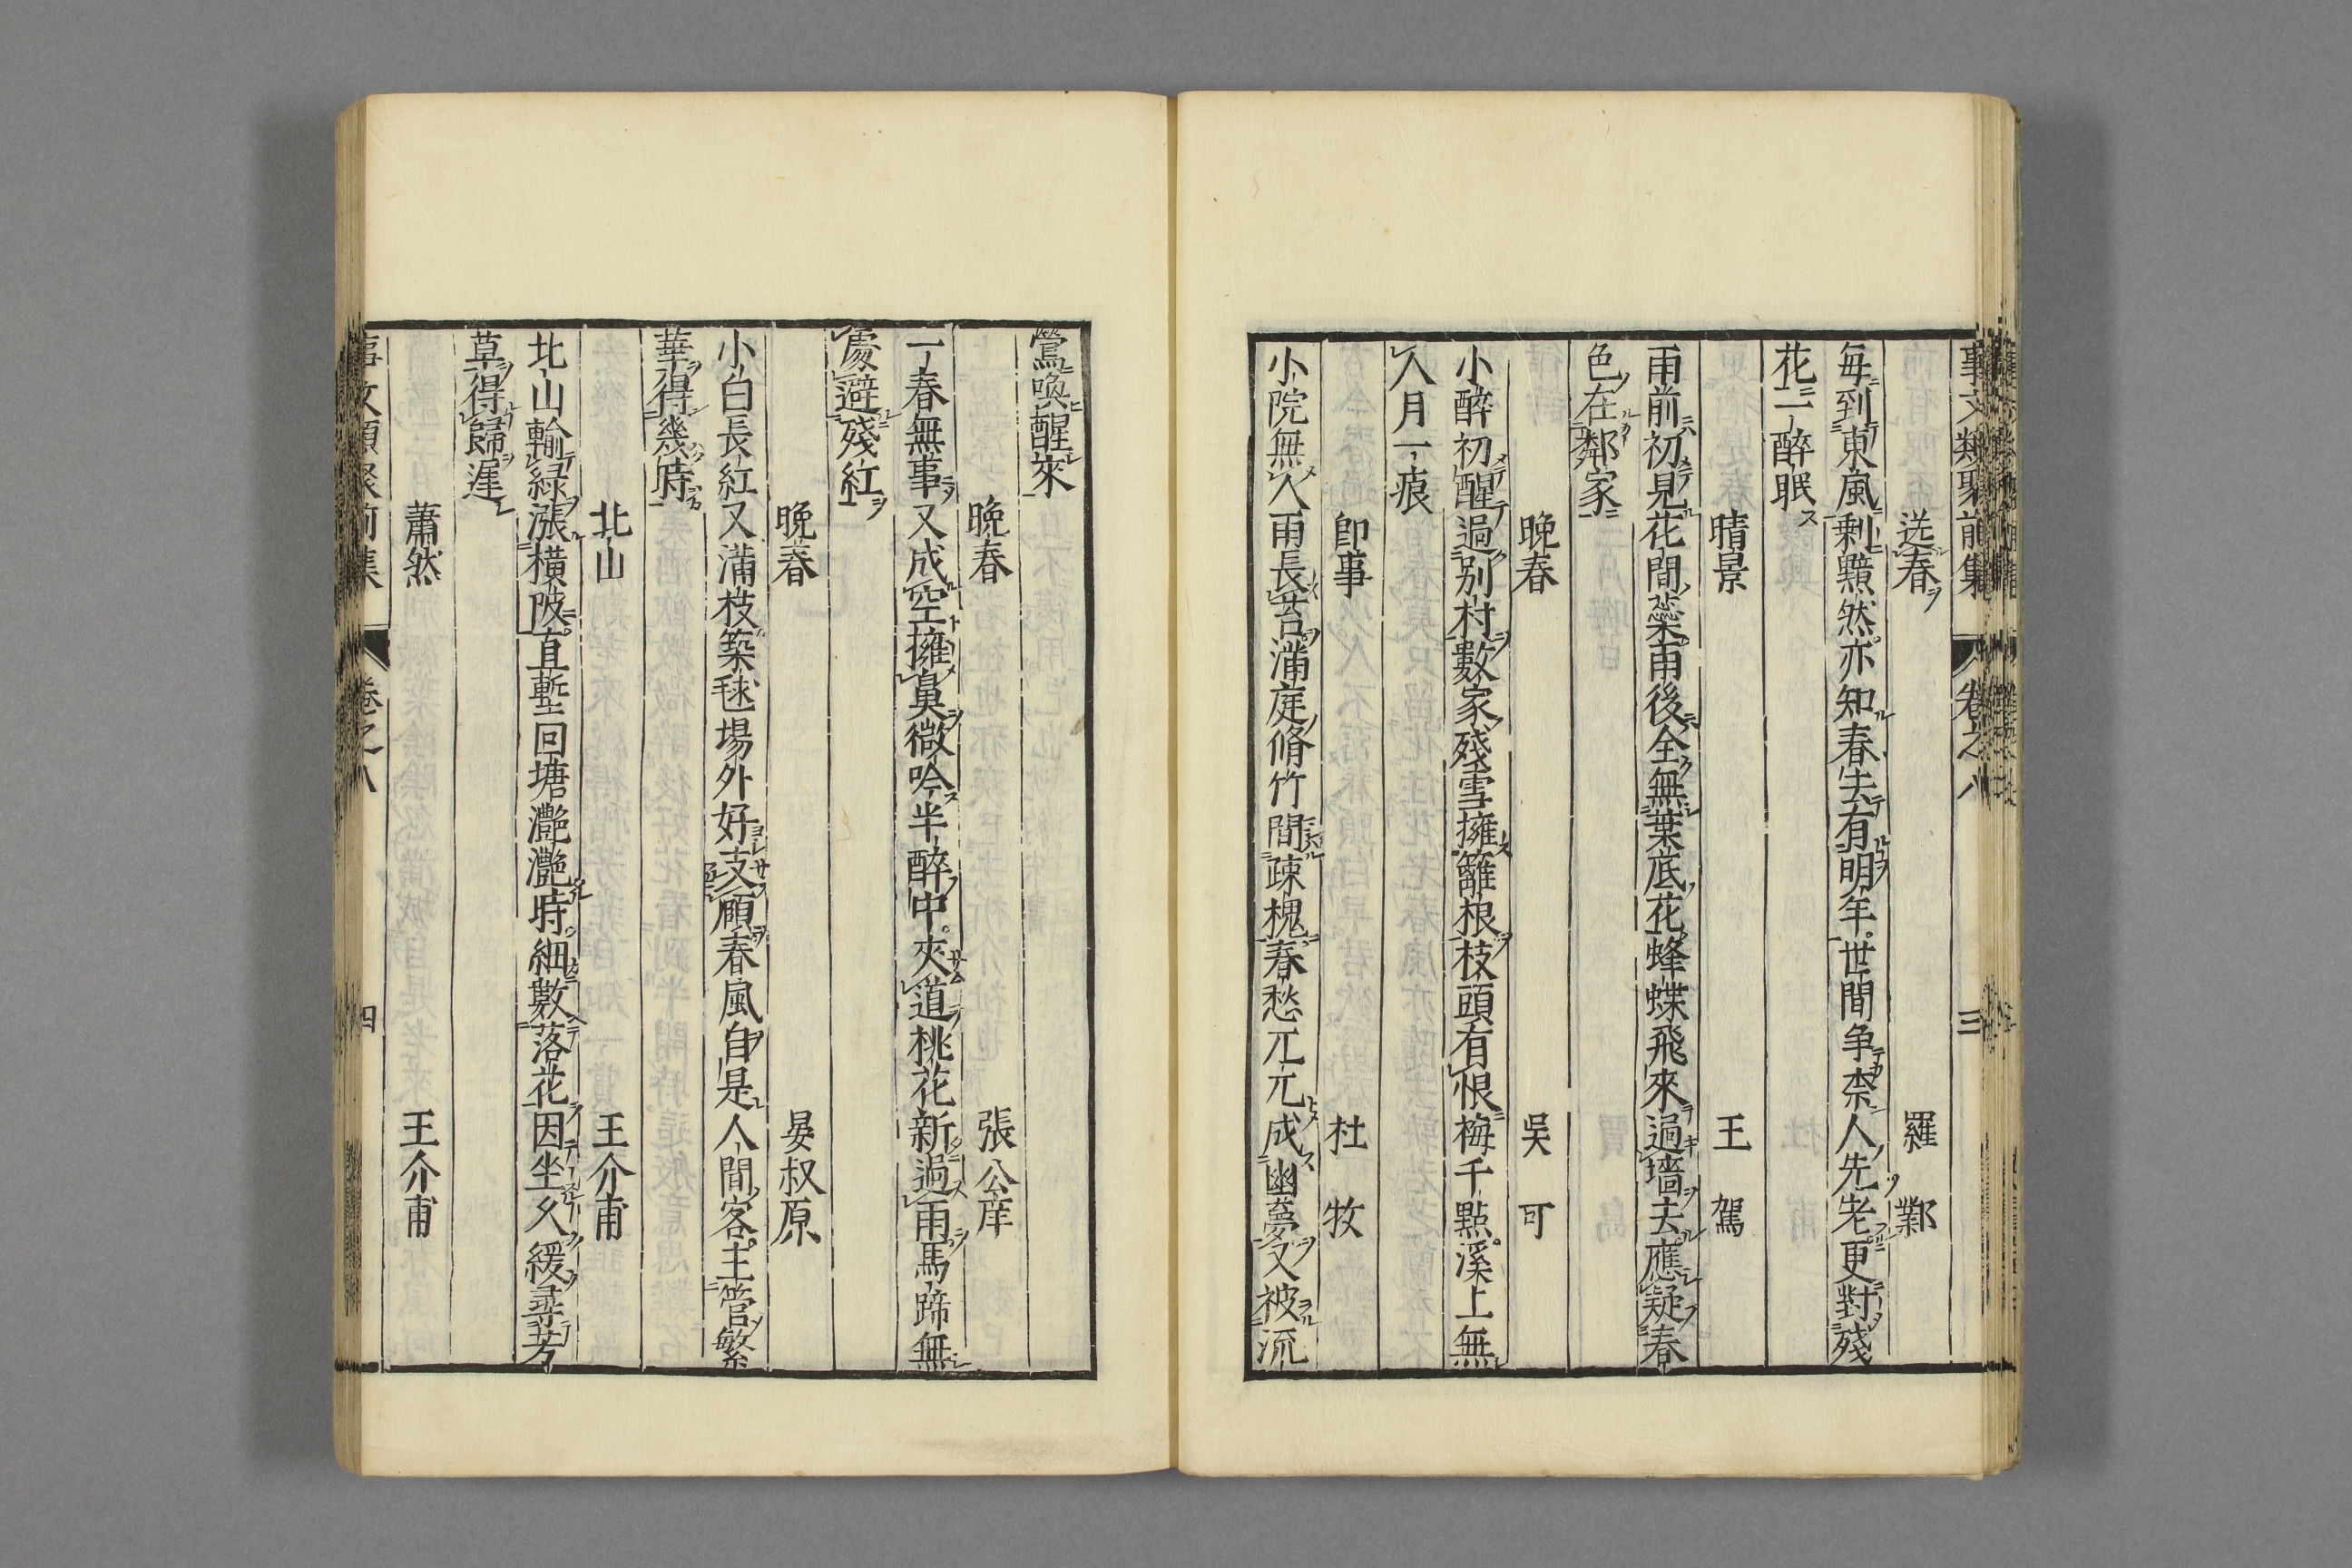 事文類聚前集 卷之八 三
送春 羅鄴
每到東風剩黯然亦知春去有明年世間爭柰人先老更對殘
花一醉眠
晴景 王駕
雨前初見花間蘂雨後全無葉底花蜂蝶飛來過墻去應疑春
色在鄰家
晚春 吳可
小醉初醒過別村數家殘雪擁籬根枝頭有恨梅千點溪上無
人月一痕
即事 杜牧
小院無人雨長苔滿庭脩竹間疎槐春愁兀兀成幽夢又被流
鶯喚醒來
晚春 張公庠
一春無事又成空擁鼻微吟半醉中夾道桃花新過雨馬蹄無
處避殘紅
晚春 晏叔原
小白長紅又滿枝築毬場外好支頤春風自是人間客主管繁
華得幾時
北山 王介甫
北山輸綠漲橫陂直塹回塘灔灔時細數落花因坐久緩尋芳
草得歸遲
蕭然 王介甫
事文類聚前集 卷之八 四